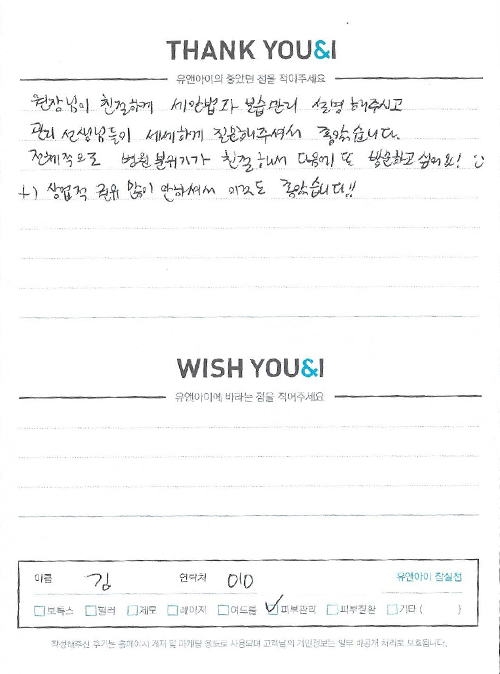 THANK YOU&I
유앤아이의 좋았던 점을 적어주세요
원장님이 친절하게 세안법과 보습관리 설명해주시고
관리 선생님들이 세세하게 질문해주셔서 좋았습니다.
전체적으로 병원분위기가 친절해서 다음에 또 방문하고 싶어요! ㅇ
+) 상업적 권유 많이 안하셔서 이것도 좋았습니다!!
WISH YOU&I
유앤아이에 바라는 점을 적어주세요
이름 김 연락처 010 유앤아이 잠실점
보톡스 필러 제모 레이저 여드름 피부관리 피부질환 기타 ( )
작성해주신 후기는 홈페이지 게재 및 마케팅 용도로 사용되며 고객님의 개인정보는 일부 비공개 처리로 보호됩니다.